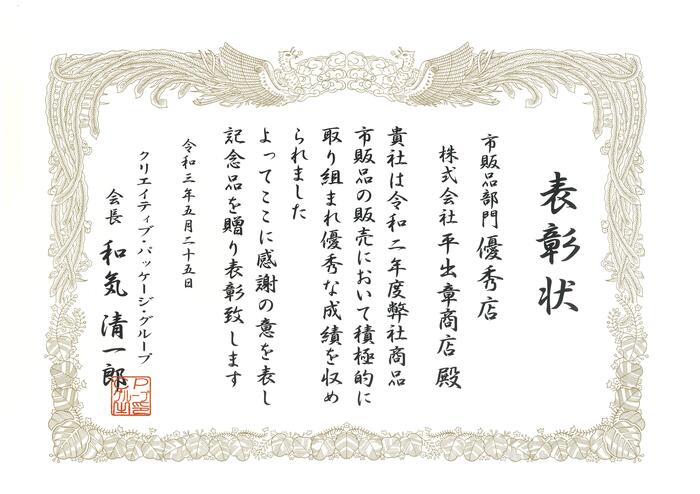 表彰状
市販品部門 優秀店
株式会社 平出章商店 殿
貴社は令和二年度弊社商品
市販品の販売において積極的に
取り組まれ優秀な成績を収め
られました
よってここに感謝の意を表し
記念品を贈り表彰致します
令和三年五月二十五日
クリエイティブ・パッケージ・グループ
会長 和気 清一郎